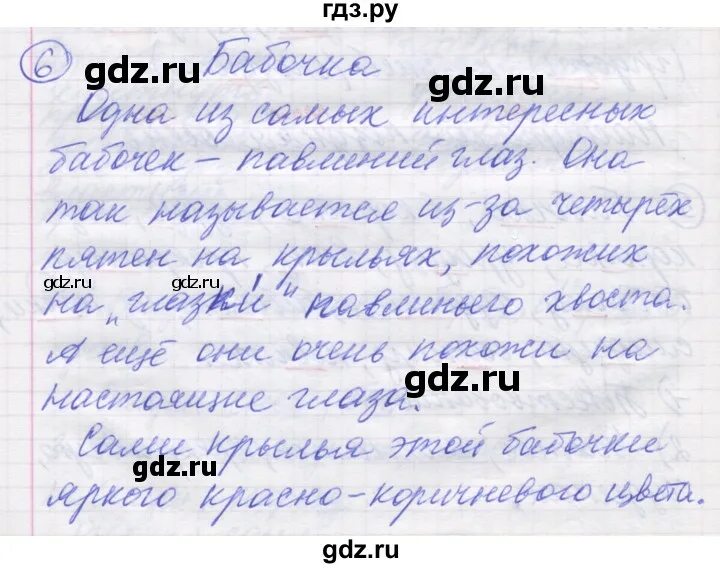 гдз.ру
6 Бабочка
gdz.ru gdz.ru
Одна из самых интересных
бабочек – павлиний глаз. Она
так называется из-за четырёх
пятен на крыльях, похожих
gdz.ru gdz.ru
на „глазки" павлиньего хвоста.
А ещё они очень похожи на
gdz.ru
настоящие глаза.
Сами крылья этой бабочки
gdz.ru
яркого красно-коричневого цвета.
gdz.ru